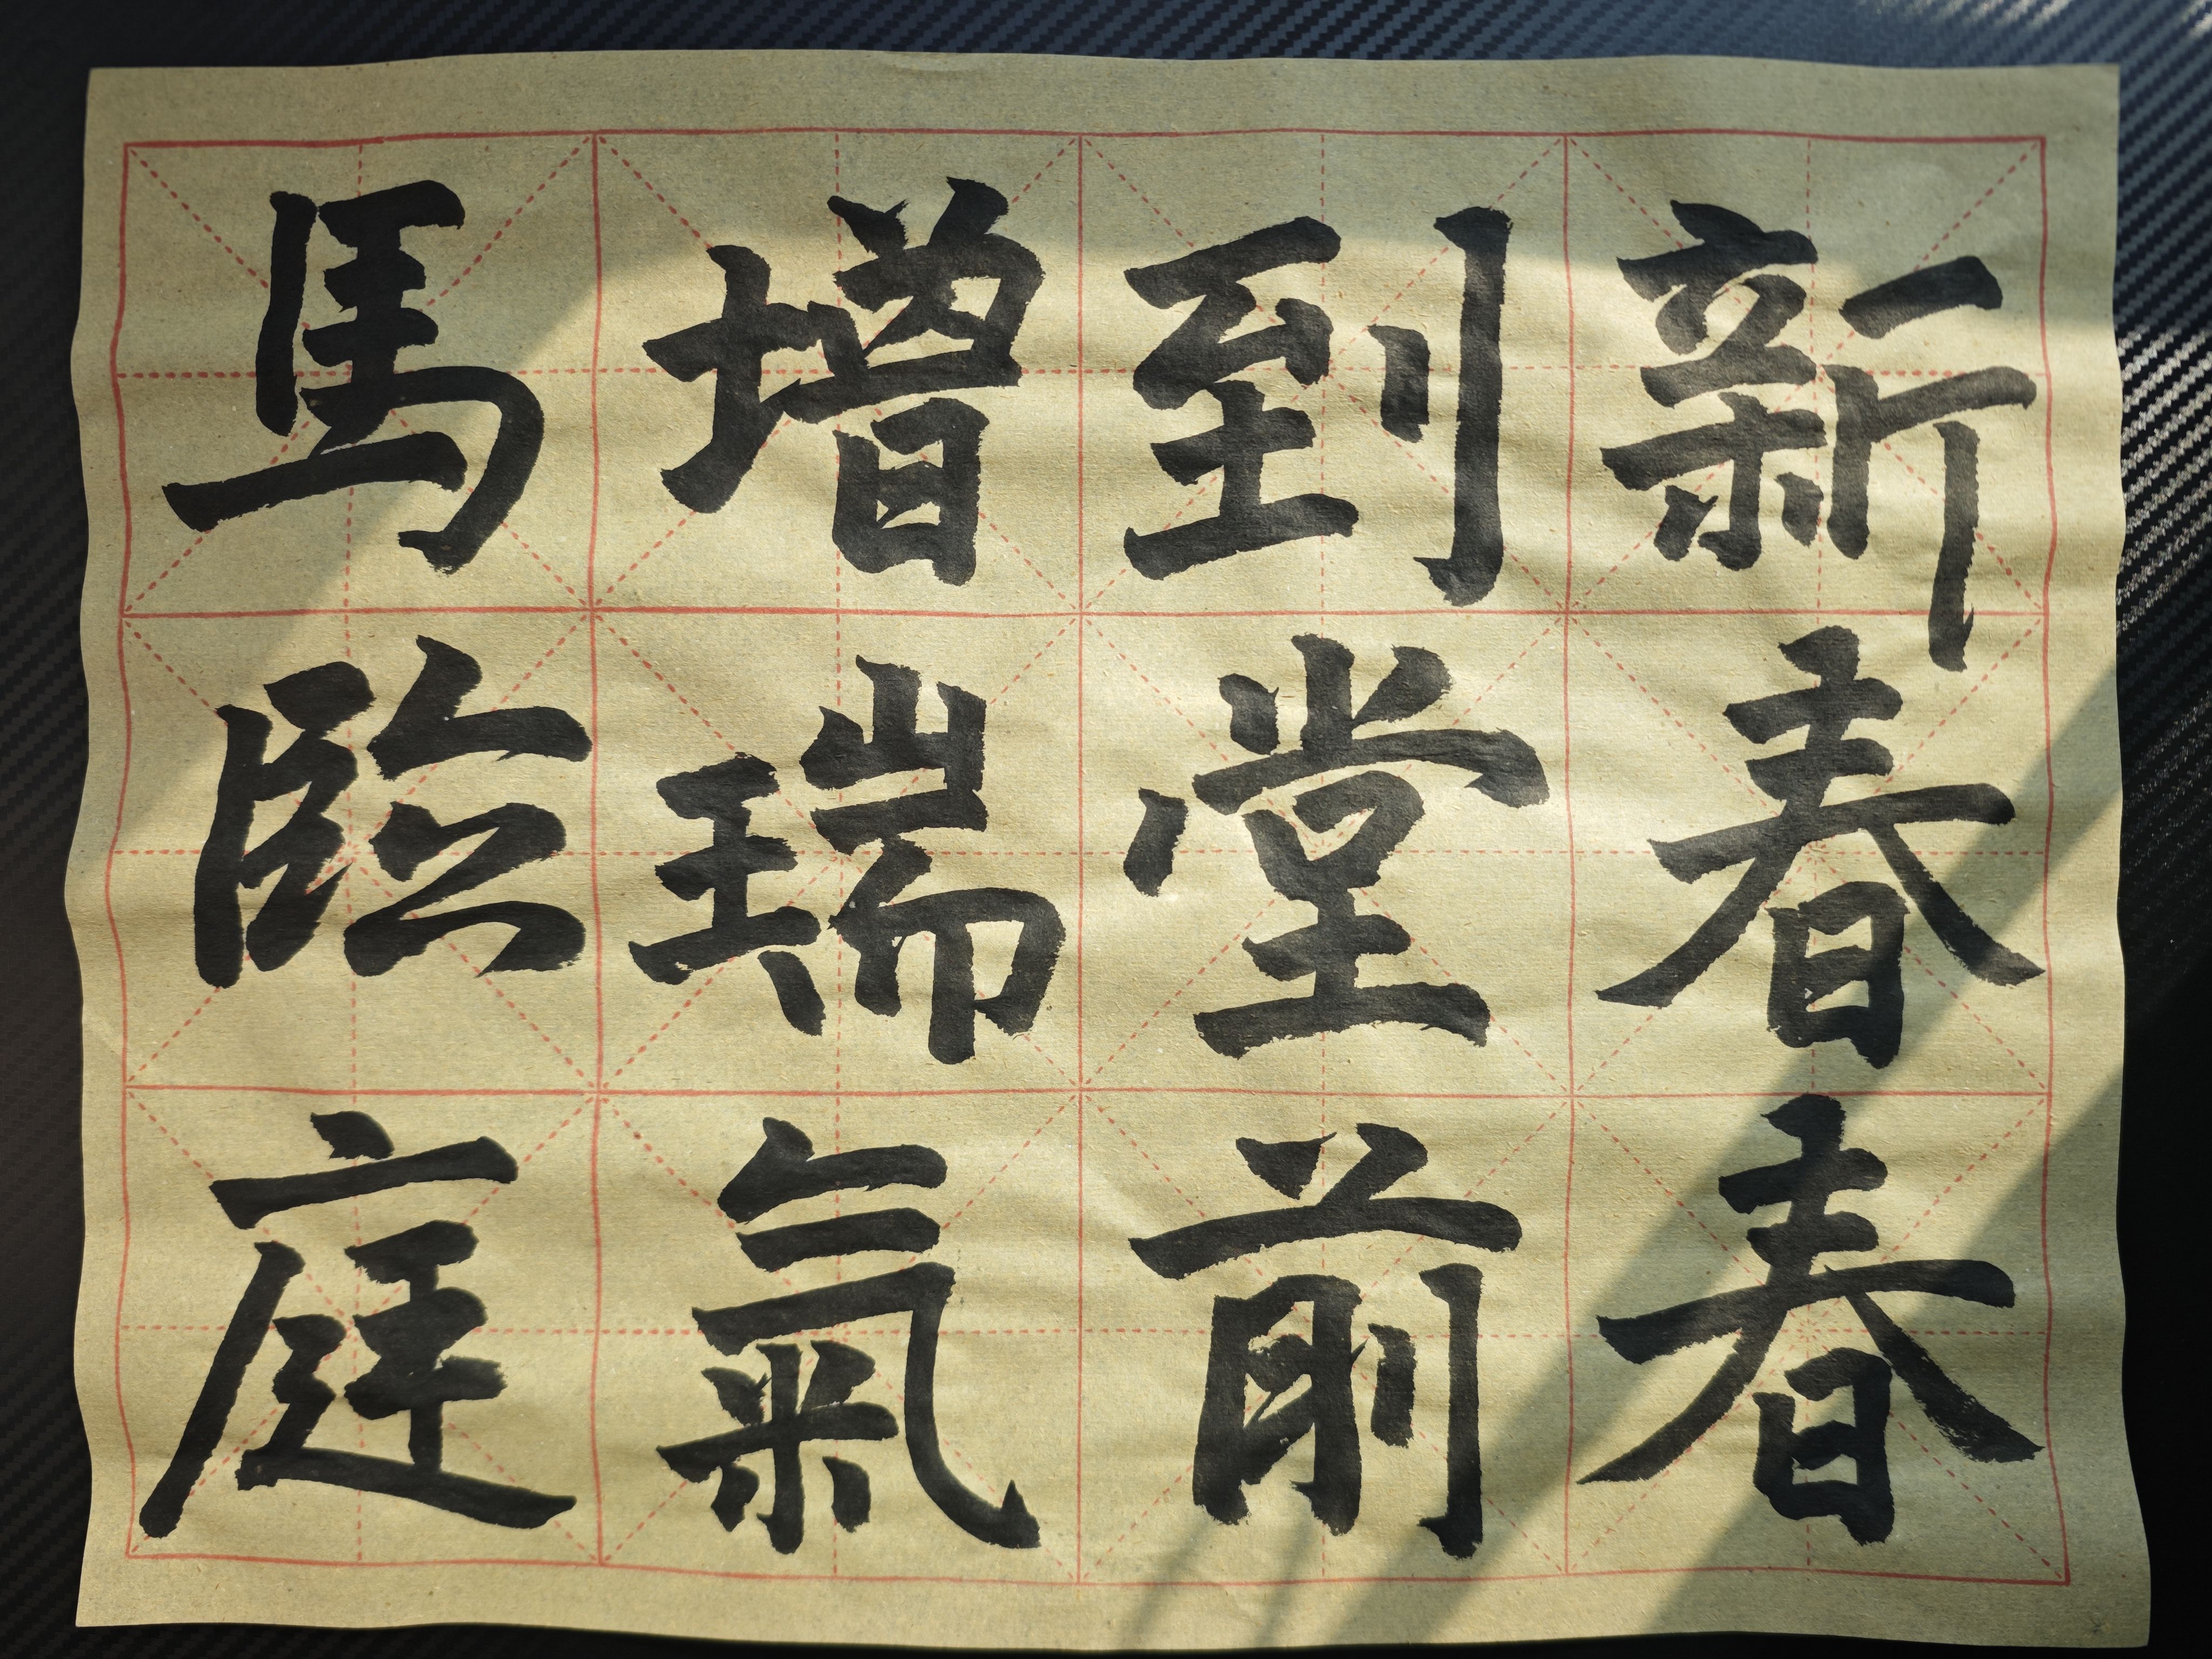 新春春
到堂前
增瑞氣
馬臨庭